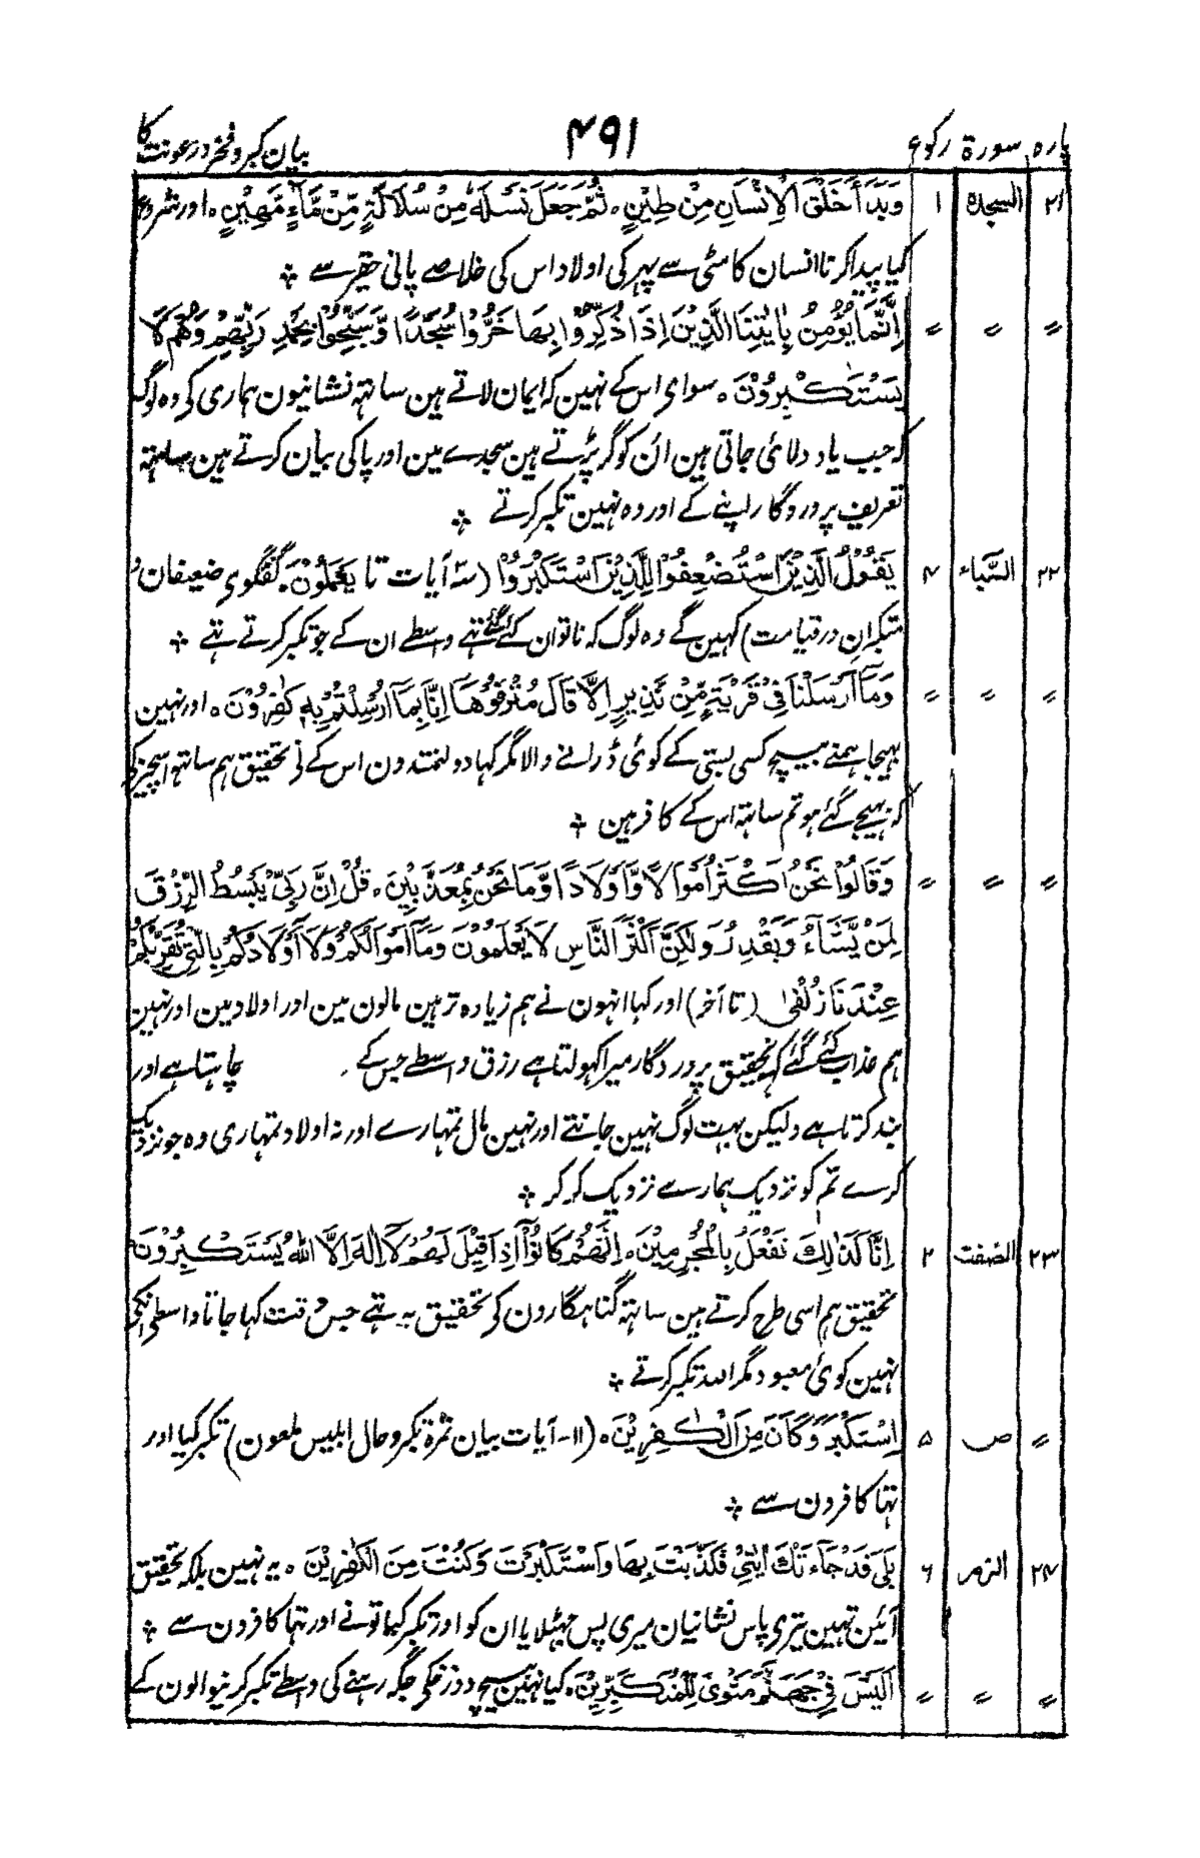 پارہ سورۃ رکوع ۴۹۱ بیان کبر و فخر و رعونت کا
۲۱ السجدہ ۱ وَبَدَأَ خَلْقَ الْاِنْسَانِ مِنْ طِيْنٍ ۰ ثُمَّ جَعَلَ نَسْلَهٗ مِنْ سُلَالَةٍ مِّنْ مَّآءٍ مَّهِيْنٍ ۰ اور شروع
کیا پیدا کرنا انسان کا مٹی سے پہر کی اولاد اس کی خلاصے پانی حقیر سے ؞
〃 〃 〃 اِنَّمَا يُؤْمِنُ بِاٰيٰتِنَا الَّذِيْنَ اِذَا ذُكِّرُوْا بِهَا خَرُّوْا سُجَّدًا وَّ سَبَّحُوْا بِحَمْدِ رَبِّهِمْ وَهُمْ لَا
يَسْتَكْبِرُوْنَ ۰ سوای اس کے نہین کہ ایمان لاتے ہین ساتہہ نشانیون ہماری کی وہ لوگ
کہ جب یاد دلائی جاتی ہین ان کو گر پڑتے ہین سجدے مین اور پاکی بیان کرتے ہین ساتہہ
تعریف پروردگار اپنے کے اور وہ نہین تکبر کرتے ؞
۲۲ السَّبَاء ۴ يَقُوْلُ الَّذِيْنَ اسْتُضْعِفُوْا لِلَّذِيْنَ اسْتَكْبَرُوْا (سہ آیات تا يَعْمَلُوْنَ ۰ گفتگوی ضعیفان و
متکبران در قیامت) کہین گے وہ لوگ کہ ناتوان کئے گئے تہے واسطے ان کے جو تکبر کرتے تہے ؞
〃 〃 〃 وَمَآ اَرْسَلْنَا فِىْ قَرْيَةٍ مِّنْ نَّذِيْرٍ اِلَّا قَالَ مُتْرَفُوْهَا اِنَّا بِمَآ اُرْسِلْتُمْ بِهٖ كٰفِرُوْنَ ۰ اور نہین
بہیجا ہمنے بیچ کسی بستی کے کوئی ڈرانے والا مگر کہا دولتمندون اس کے نے تحقیق ہم ساتہہ اسچیز کے
کہ بہیجے گئے ہو تم ساتہہ اس کے کافر ہین ؞
〃 〃 〃 وَقَالُوْا نَحْنُ اَكْثَرُ اَمْوَالًا وَّ اَوْلَادًا وَّمَا نَحْنُ بِمُعَذَّبِيْنَ ۰ قُلْ اِنَّ رَبِّىْ يَبْسُطُ الرِّزْقَ
لِمَنْ يَّشَآءُ وَيَقْدِرُ وَلٰكِنَّ اَكْثَرَ النَّاسِ لَا يَعْلَمُوْنَ وَمَآ اَمْوَالُكُمْ وَلَآ اَوْلَادُكُمْ بِالَّتِىْ تُقَرِّبُكُمْ
عِنْدَنَا زُلْفٰى (تا آخر) اور کہا انہون نے ہم زیادہ تر ہین مالون مین اور اولاد مین اور نہین
ہم عذاب کئے گئے کہہ تحقیق پروردگار میرا کہولتا ہے رزق واسطے جس کے . چاہتا ہے اور
بند کرتا ہے ولیکن بہت لوگ نہین جانتے اور نہین مال تمہارے اور نہ اولاد تمہاری وہ جو نزدیک
کرے تم کو نزدیک ہمارے نزدیک کر کر ؞
۲۳ الصّفت ۲ اِنَّا كَذٰلِكَ نَفْعَلُ بِالْمُجْرِمِيْنَ ۰ اِنَّهُمْ كَانُوْٓا اِذَا قِيْلَ لَهُمْ لَآ اِلٰهَ اِلَّا اللّٰهُ يَسْتَكْبِرُوْنَ
تحقیق ہم اسی طرح کرتے ہین ساتہہ گناہگارون کے تحقیق یہ تہے جس وقت کہا جاتا واسطے انکی
نہین کوئی معبود مگر اللہ تکبر کرتے ؞
〃 ص ۵ اِسْتَكْبَرَ وَكَانَ مِنَ الْكٰفِرِيْنَ ۰ (۱۱-آیات بیان ثمرۃ تکبر و حال ابلیس ملعون) تکبر کیا اور
تہا کافرون سے ؞
۲۴ الزمر ۶ بَلٰى قَدْ جَآءَتْكَ اٰيٰتِىْ فَكَذَّبْتَ بِهَا وَاسْتَكْبَرْتَ وَكُنْتَ مِنَ الْكٰفِرِيْنَ ۰ یہ نہین بلکہ تحقیق
آئین تہین تیری پاس نشانیان میری پس جہٹلایا ان کو اور تکبر کیا تونے اور تہا کافرون سے ؞
〃 〃 〃 اَلَيْسَ فِىْ جَهَنَّمَ مَثْوًى لِّلْمُتَكَبِّرِيْنَ ۰ کیا نہین بیچ دوزخ کی جگہ رہنے کی واسطے تکبر کرنیوالون کے